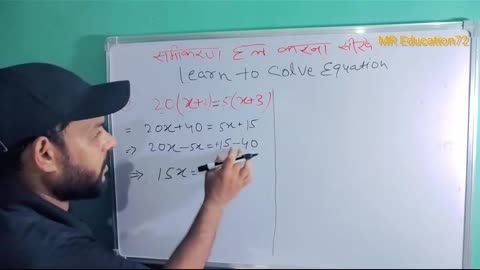 MR Education72
समीकरण हल करना सीखे
Learn to Solve Equation
20(x+2)=5(x+3)
= 20x+40=5x+15
⇒ 20x-5x=+15-40
⇒ 15x=